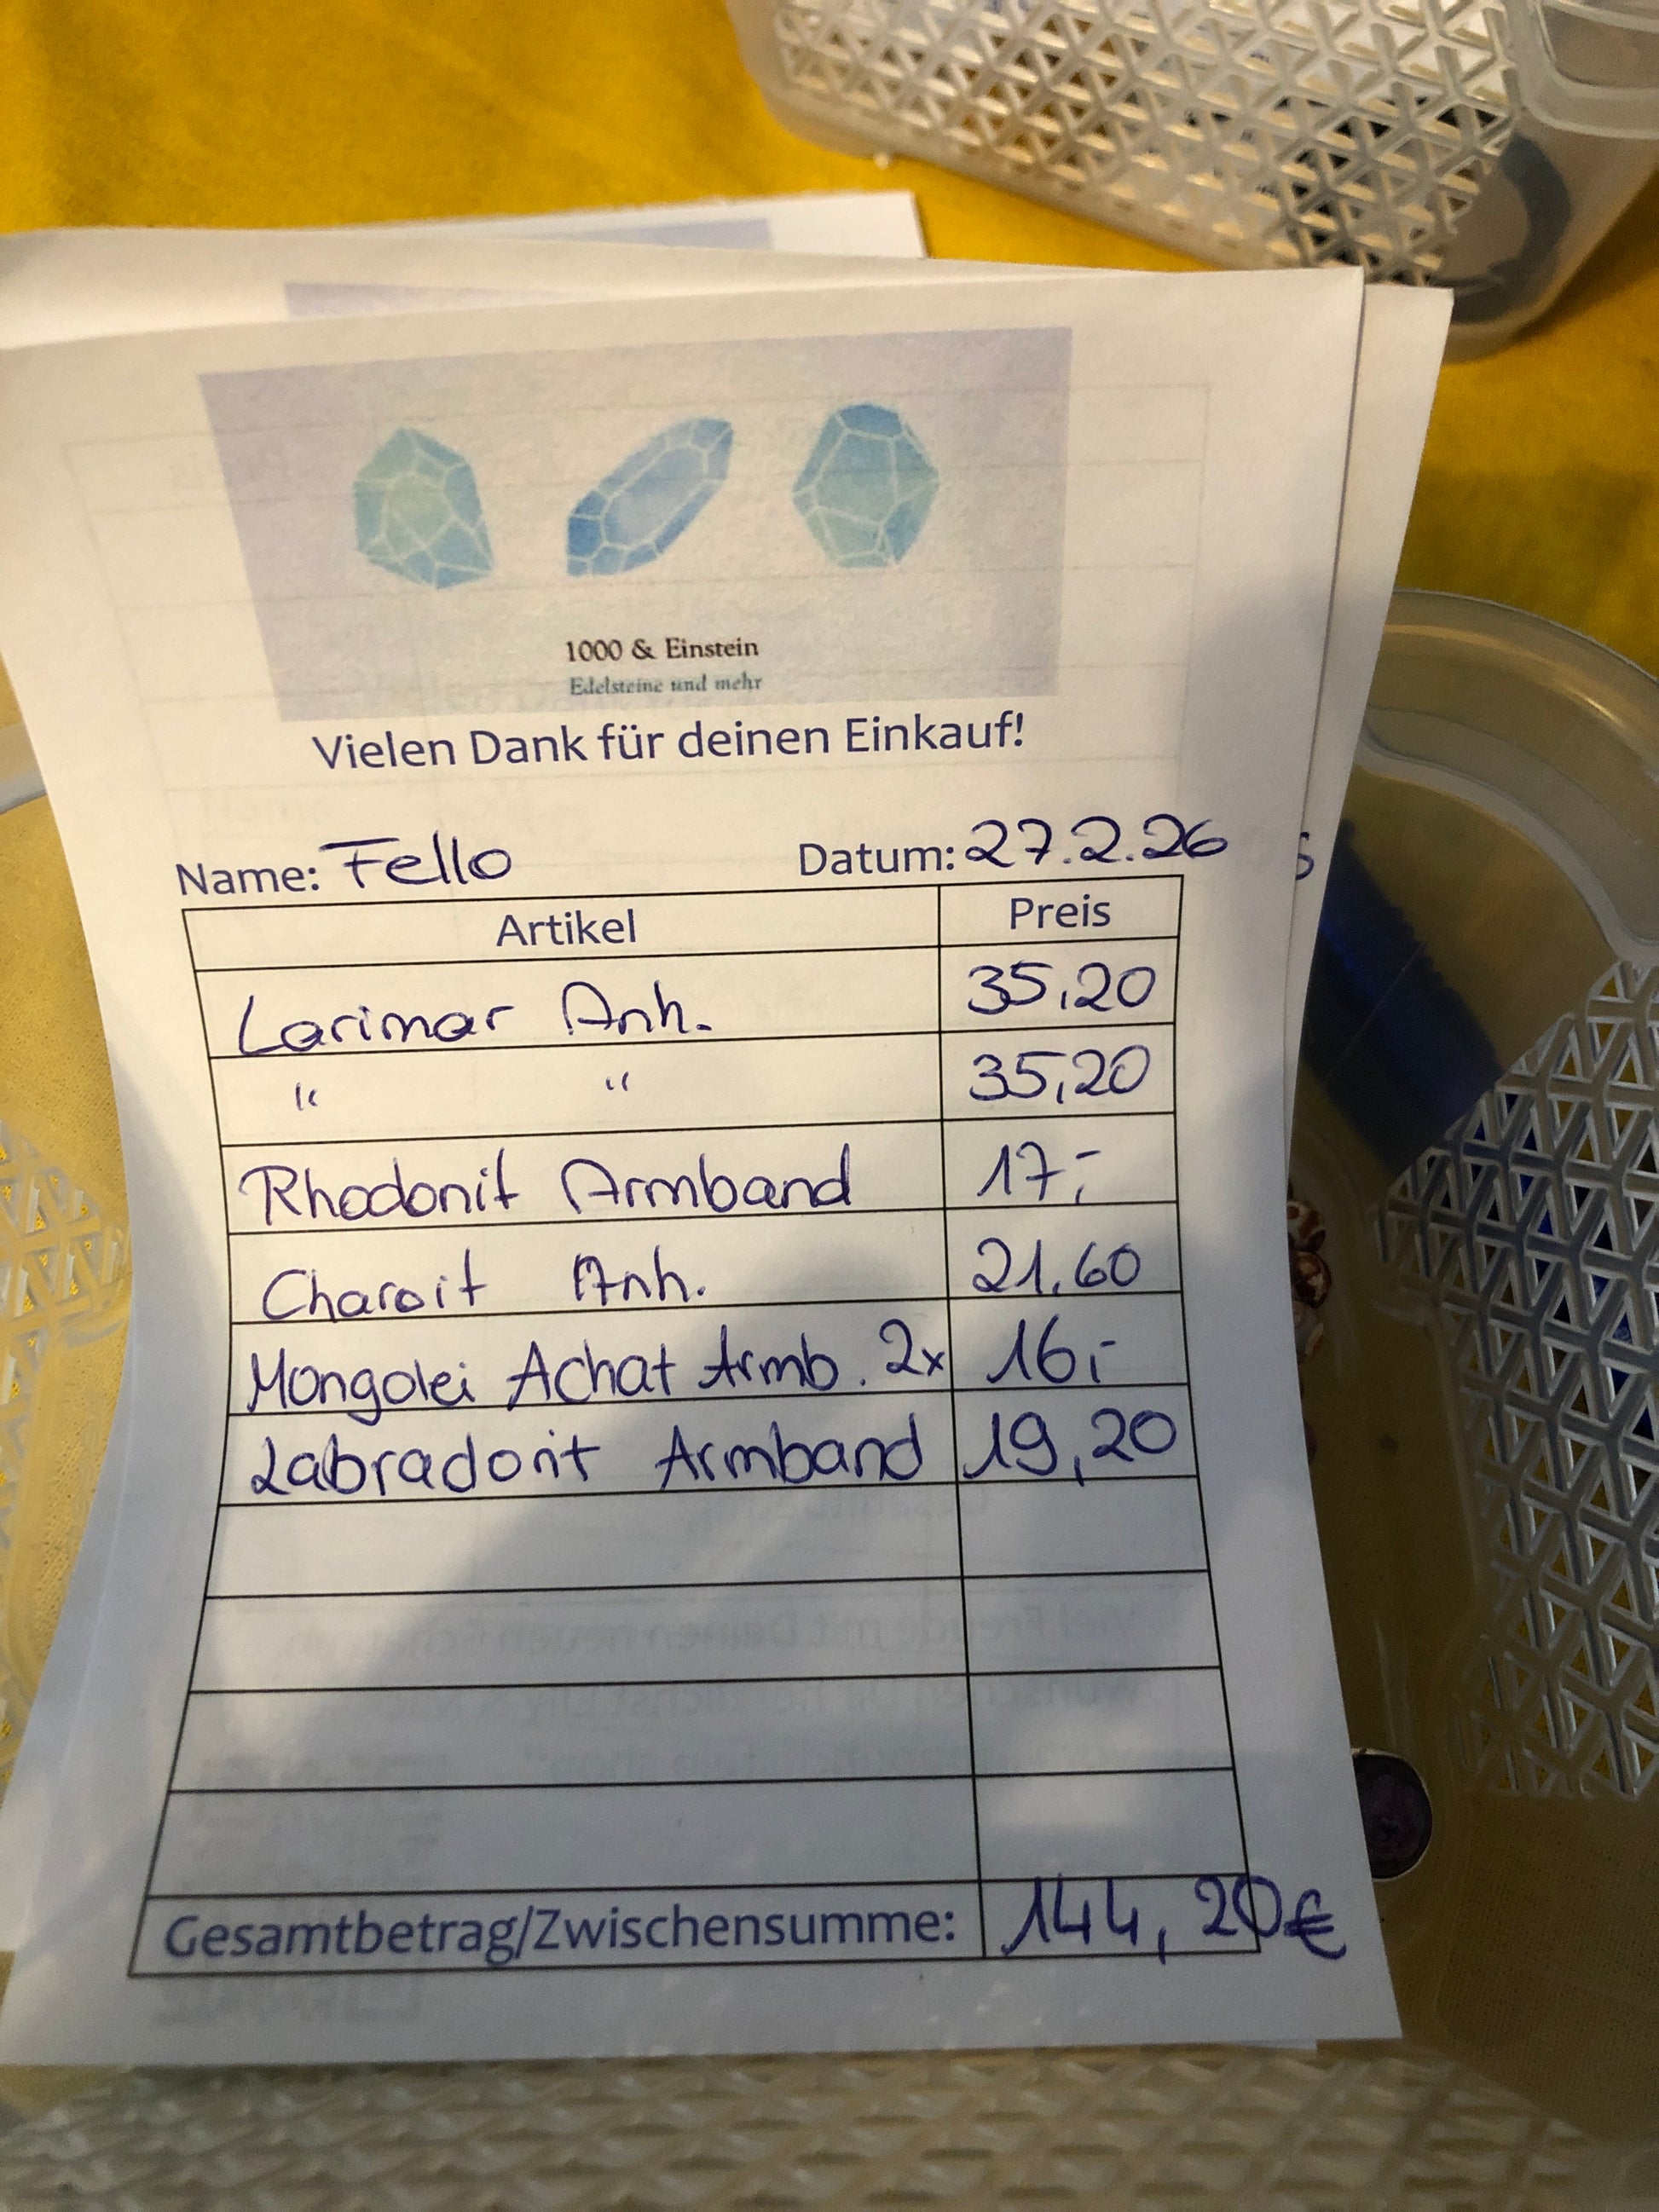 1000 & Einstein
Edelsteine und mehr
Vielen Dank für deinen Einkauf!
Name: Fello Datum: 27.2.26
Artikel Preis
Larimar Anh. 35,20
" " 35,20
Rhodonit Armband 17,-
Charoit Anh. 21,60
Mongolei Achat Armb. 2x 16,-
Labradorit Armband 19,20
Gesamtbetrag/Zwischensumme: 144,20€